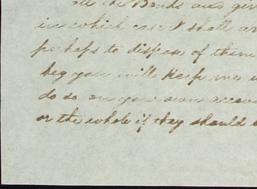 all the Bonds are giv
in which case I shall
perhaps to dispose of them
beg you will keep me
do so on your own
or the whole if they should